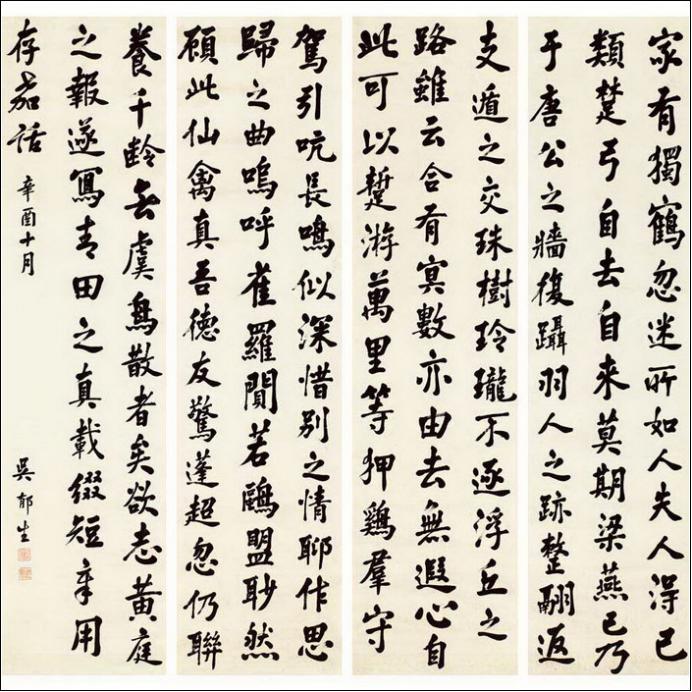 家有獨鶴忽迷所如人失人得已
類楚弓自去自来莫期梁燕已乃
于唐公之牆復躡羽人之跡整翮返
支遁之交珠樹玲瓏不逐浮丘之
路雖云合有冥數亦由去無遐心自
此可以蹔游萬里等狎鷄羣守
駕引吭長鳴似深惜別之情聊作思
歸之曲嗚呼雀羅閴若鷗盟眇然
顧此仙禽真吾德友驚蓬超忽仍聯
養千齡無虞鳧散者矣欲志黄庭
之報遂寫青田之真載綴短章用
存嘉話 辛酉十月
吳郁生